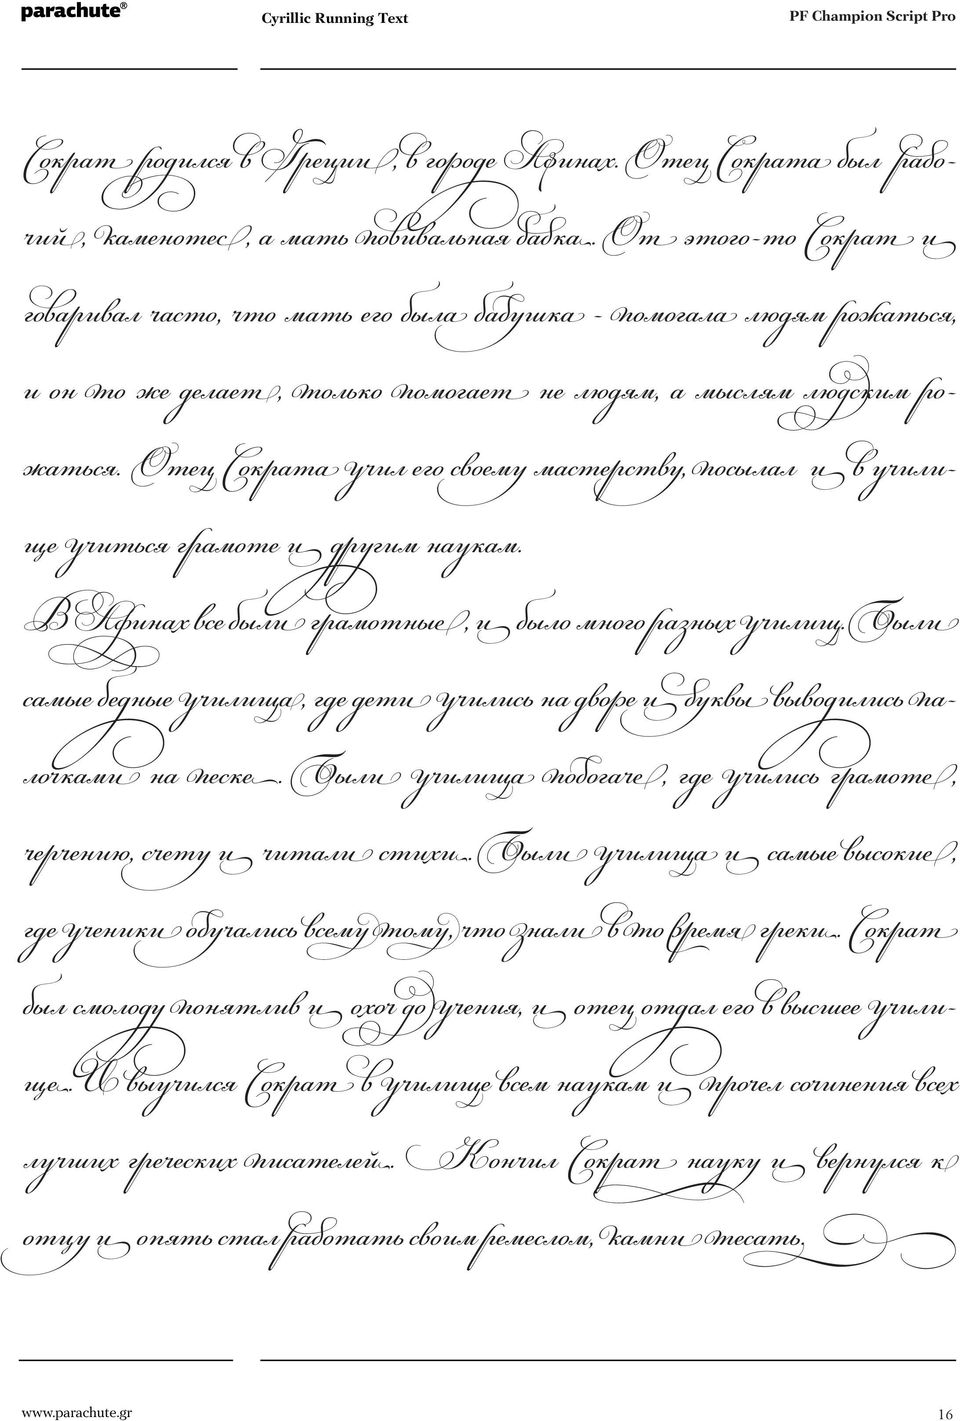 parachute® Cyrillic Running Text PF Champion Script Pro
Сократ родился в Греции, в городе Афинах. Отец Сократа был рабо-
чий, каменотес, а мать повивальная бабка. От этого-то Сократ и
говаривал часто, что мать его была бабушка - помогала людям рожаться,
и он то же делает, только помогает не людям, а мыслям людским ро-
жаться. Отец Сократа учил его своему мастерству, посылал и в учили-
ще учиться грамоте и другим наукам.
В Афинах все были грамотные, и было много разных училищ. Были
самые бедные училища, где дети учились на дворе и буквы выводились па-
лочками на песке. Были училища побогаче, где учились грамоте,
черчению, счету и читали стихи. Были училища и самые высокие,
где ученики обучались всему тому, что знали в то время греки. Сократ
был смолоду понятлив и охоч до учения, и отец отдал его в высшее учили-
ще. И выучился Сократ в училище всем наукам и прочел сочинения всех
лучших греческих писателей. Кончил Сократ науку и вернулся к
отцу и опять стал работать своим ремеслом, камни тесать.
www.parachute.gr 16